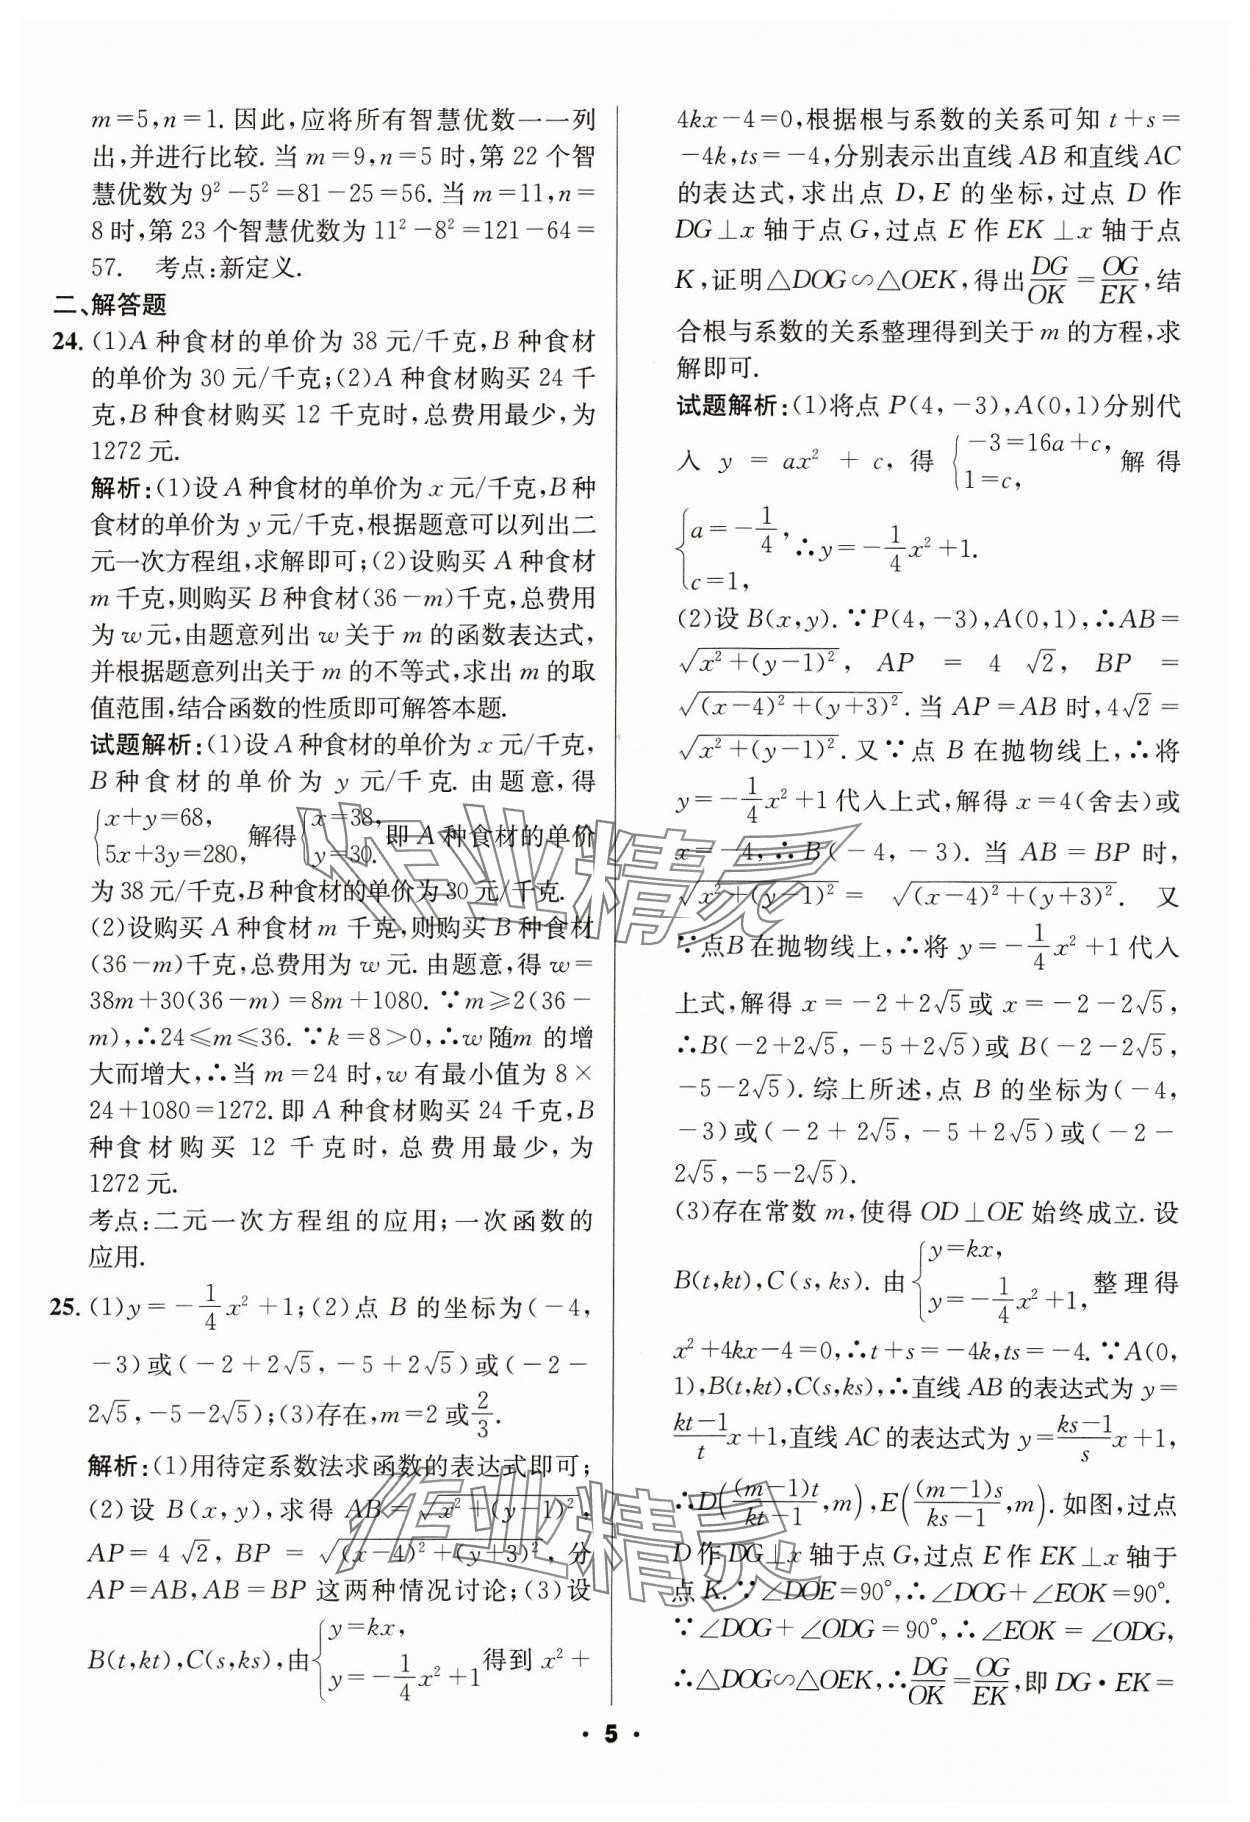 m=5,n=1. 因此,应将所有智慧优数一一列
出,并进行比较. 当 m=9,n=5 时,第 22 个智
慧优数为 9²-5²=81-25=56. 当 m=11,n=
8 时,第 23 个智慧优数为 11²-8²=121-64=
57. 考点:新定义.
二、解答题
24. (1)A 种食材的单价为 38 元/千克,B 种食材
的单价为 30 元/千克;(2)A 种食材购买 24 千
克,B 种食材购买 12 千克时,总费用最少,为
1272 元.
解析:(1)设 A 种食材的单价为 x 元/千克,B 种
食材的单价为 y 元/千克,根据题意可以列出二
元一次方程组,求解即可;(2)设购买 A 种食材
m 千克,则购买 B 种食材(36-m)千克,总费用
为 w 元,由题意列出 w 关于 m 的函数表达式,
并根据题意列出关于 m 的不等式,求出 m 的取
值范围,结合函数的性质即可解答本题.
试题解析:(1)设 A 种食材的单价为 x 元/千克,
B 种食材的单价为 y 元/千克. 由题意,得
{x+y=68, 5x+3y=280, 解得{x=38, y=30. 即 A 种食材的单价
为 38 元/千克,B 种食材的单价为 30 元/千克.
(2)设购买 A 种食材 m 千克,则购买 B 种食材
(36-m)千克,总费用为 w 元. 由题意,得 w=
38m+30(36-m)=8m+1080. ∵m≥2(36-
m),∴24≤m≤36. ∵k=8>0,∴w 随m 的增
大而增大,∴当 m=24 时,w 有最小值为 8×
24+1080=1272. 即 A 种食材购买 24 千克,B
种食材购买 12 千克时,总费用最少,为
1272 元.
考点:二元一次方程组的应用;一次函数的
应用.
25. (1)y=-1/4x²+1;(2)点 B 的坐标为(-4,
-3)或(-2+2√5,-5+2√5)或(-2-
2√5,-5-2√5);(3)存在,m=2 或2/3.
解析:(1)用待定系数法求函数的表达式即可;
(2)设 B(x,y),求得 AB=√(x²+(y-1)²),
AP=4√2,BP=√((x-4)²+(y+3)²),分
AP=AB,AB=BP 这两种情况讨论;(3)设
B(t,kt),C(s,ks),由{y=kx, y=-1/4x²+1得到 x²+
4kx-4=0,根据根与系数的关系可知 t+s=
-4k,ts=-4,分别表示出直线 AB 和直线 AC
的表达式,求出点 D,E 的坐标,过点 D 作
DG⊥x 轴于点 G,过点 E 作 EK⊥x 轴于点
K,证明△DOG∽△OEK,得出DG/OK=OG/EK,结
合根与系数的关系整理得到关于 m 的方程,求
解即可.
试题解析:(1)将点 P(4,-3),A(0,1)分别代
入 y=ax²+c,得{-3=16a+c, 1=c, 解得
{a=-1/4, c=1, ∴y=-1/4x²+1.
(2)设 B(x,y). ∵P(4,-3),A(0,1),∴AB=
√(x²+(y-1)²),AP=4√2,BP=
√((x-4)²+(y+3)²). 当 AP=AB 时,4√2=
√(x²+(y-1)²). 又∵点 B 在抛物线上,∴将
y=-1/4x²+1 代入上式,解得 x=4(舍去)或
x=-4,∴B(-4,-3). 当 AB=BP 时,
√(x²+(y-1)²)=√((x-4)²+(y+3)²). 又
∵点B 在抛物线上,∴将 y=-1/4x²+1 代入
上式,解得 x=-2+2√5或 x=-2-2√5,
∴B(-2+2√5,-5+2√5)或 B(-2-2√5,
-5-2√5). 综上所述,点 B 的坐标为(-4,
-3)或(-2+2√5,-5+2√5)或(-2-
2√5,-5-2√5).
(3)存在常数 m,使得 OD⊥OE 始终成立. 设
B(t,kt),C(s,ks). 由{y=kx, y=-1/4x²+1, 整理得
x²+4kx-4=0,∴t+s=-4k,ts=-4. ∵A(0,
1),B(t,kt),C(s,ks),∴直线 AB 的表达式为 y=
(kt-1)/t x+1,直线 AC 的表达式为 y=(ks-1)/s x+1,
∴D((m-1)t/(kt-1),m),E((m-1)s/(ks-1),m). 如图,过点
D 作 DG⊥x 轴于点 G,过点 E 作 EK⊥x 轴于
点 K. ∵∠DOE=90°,∴∠DOG+∠EOK=90°.
∵∠DOG+∠ODG=90°,∴∠EOK=∠ODG,
∴△DOG∽△OEK,∴DG/OK=OG/EK,即 DG·EK=
· 5 ·
作业精灵
作业精灵